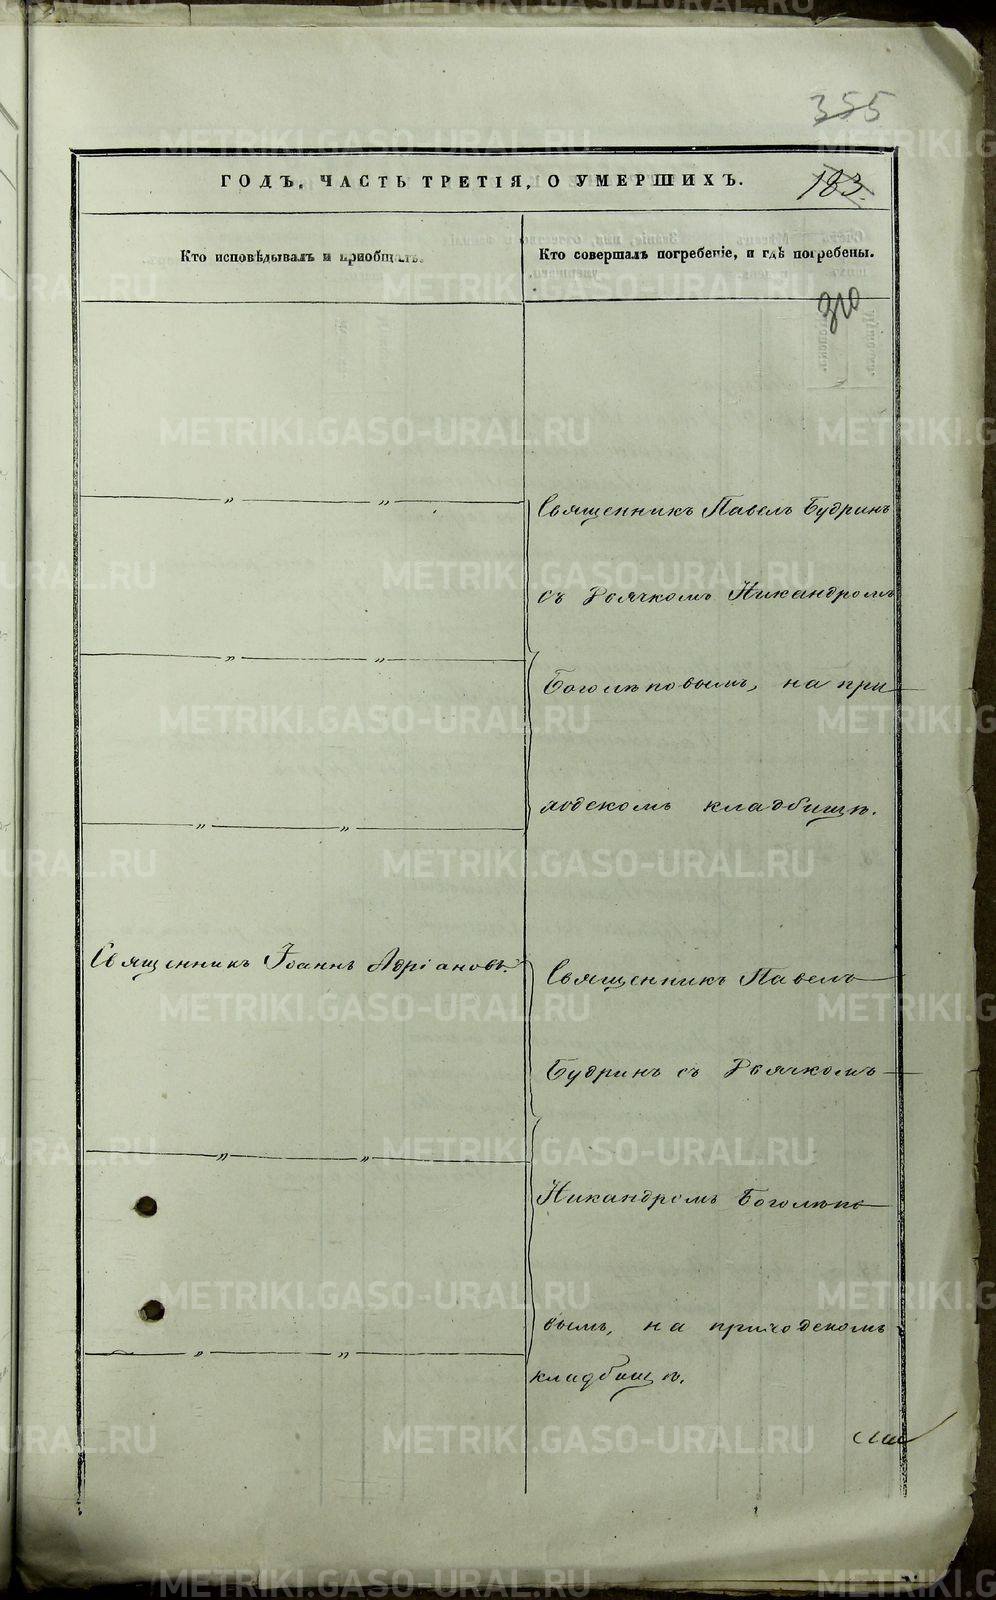 355
ГОДЪ, ЧАСТЬ ТРЕТІЯ, О УМЕРШИХЪ.
183.
Кто исповѣдывалъ и пріобщалъ.
Кто совершалъ погребеніе, и гдѣ погребены.
310
Священникъ Павелъ Будринъ
съ Дьячкомъ Никандромъ
Боголѣповымъ, на при-
ходскомъ кладбищѣ.
Священникъ Іоаннъ Адріановъ.
Священникъ Павелъ
Будринъ съ Дьячкомъ
Никандромъ Боголѣпо-
вымъ, на приходскомъ
кладбищѣ.
METRIKI.GASO-URAL.RU